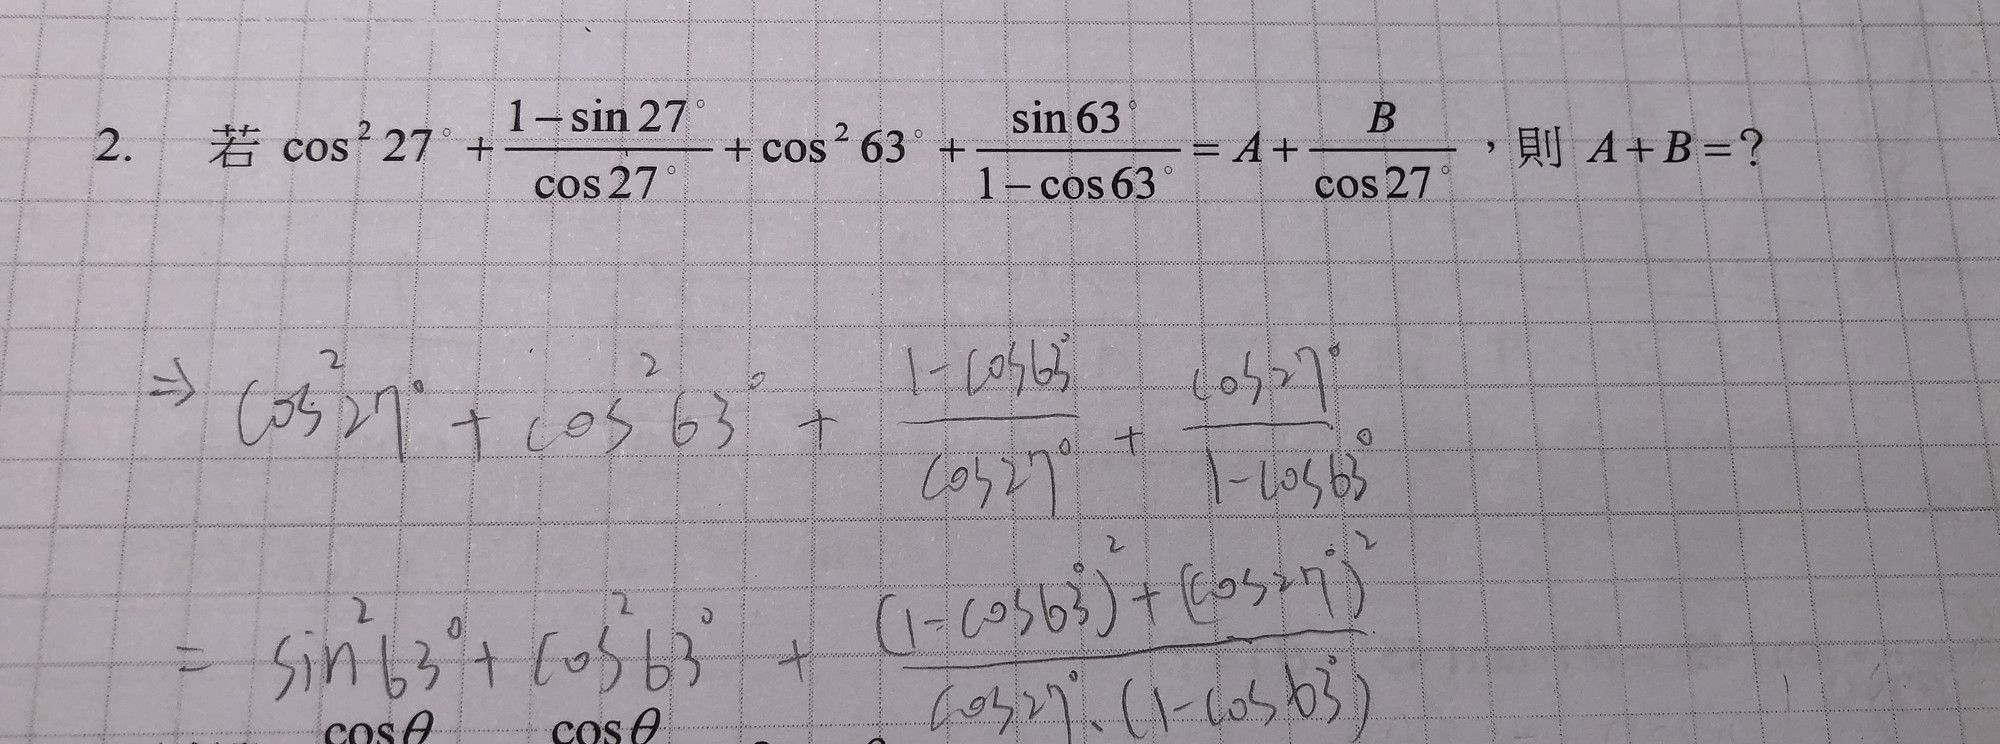 2. 若 cos² 27° + (1−sin 27°)/(cos 27°) + cos² 63° + (sin 63°)/(1−cos 63°) = A + B/(cos 27°)，則 A+B=?
⇒ cos²27° + cos²63° + (1-cos63°)/(cos27°) + (cos27°)/(1-cos63°)
= sin²63° + cos²63° + ((1-cos63°)²+(cos27°)²)/(cos27°、(1-cos63°))
cosθ cosθ